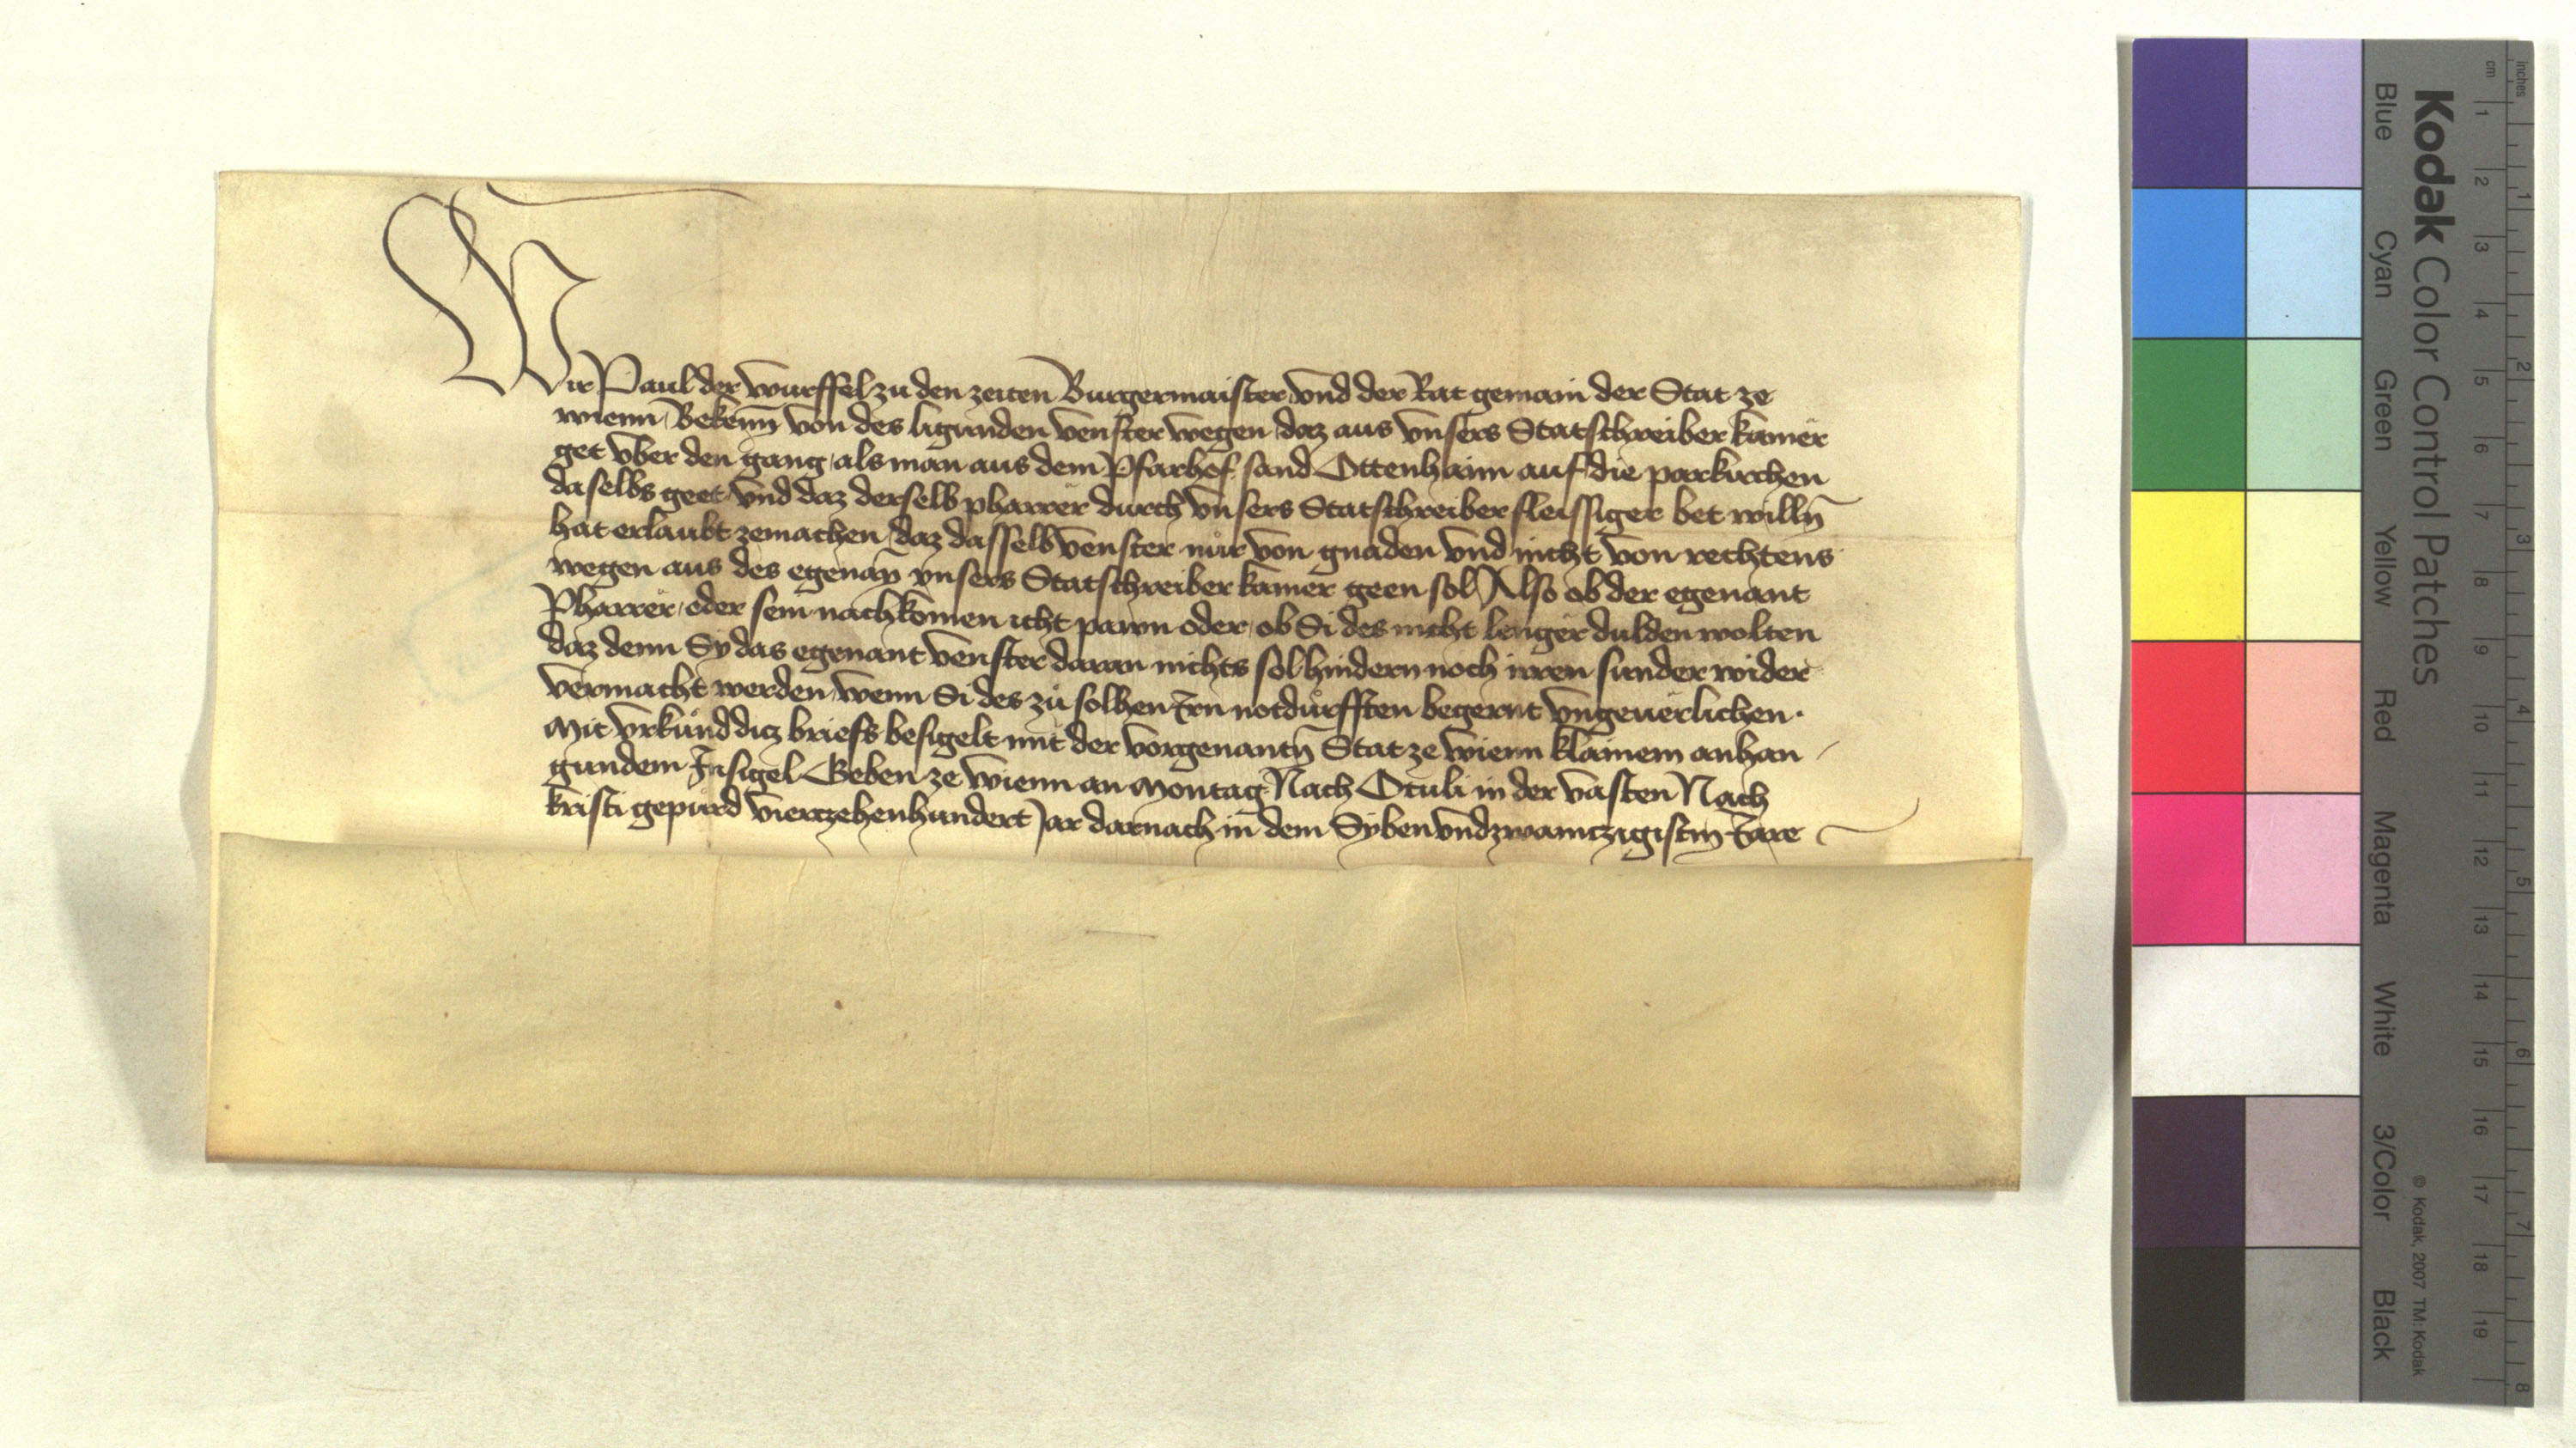 Wir Paul der Würffel zu den zeiten Burgermaister vnd der Rat gemain der Stat ze
wienn Bekenn̄ von des ligunden venster wegen daz aus vnsers Statschreiber kamer
get vber den gang als man aus dem Pfarhof sand Ottenhaim auf die parkirchen
daselbs geet vnd daz derselb pharrer durch vnsers Statschreiber fleissiger bet willn̄
hat erlaubt zemachen daz dasselb venster nür von gnaden vnd nicht von rechtens
wegen aus des egenan̄ vnsers Statschreiber kamer geen sol Also ob der egenant
Pharrer oder sein nachkomen icht pawn oder ob Si des nicht lenger dulden wolten
daz denn Sy das egenant venster daran nichts sol hindern noch irren sunder wider
vermacht werden wenn Si des zů solhen Irn notdürfften begernt vngeuerlichen.
Mit vrkůnd dicz briefs besigelt mit der vorgenantn̄ Stat ze wienn klainem anhan
gundem Insigel Geben ze Wienn an Montag Nach Oculi in der vasten Nach
kristi gepürd vierczehenhundert Jar darnach in dem Syben vnd zwainczigistn̄ Jare
Kodak Color Control Patches
Blue Cyan Green Yellow Red Magenta White 3/Color Black
© Kodak, 2007 TM: Kodak
cm 1 2 3 4 5 6 7 8 9 10 11 12 13 14 15 16 17 18 19
inches 1 2 3 4 5 6 7 8